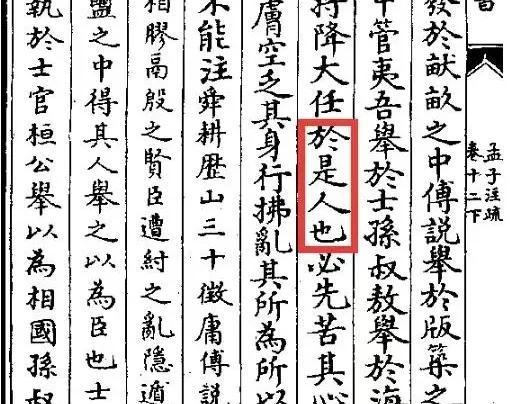 孟子注疏
卷十二下
發於畎畝之中傅說舉於版築之
中管夷吾舉於士孫叔敖舉於海
將降大任於是人也必先苦其心
膚空乏其身行拂亂其所為所以
不能注舜耕歷山三十徵庸傅說
相膠鬲殷之賢臣遭紂之亂隱遁
鹽之中得其人舉之以為臣也士
執於士官桓公舉以為相國孫叔